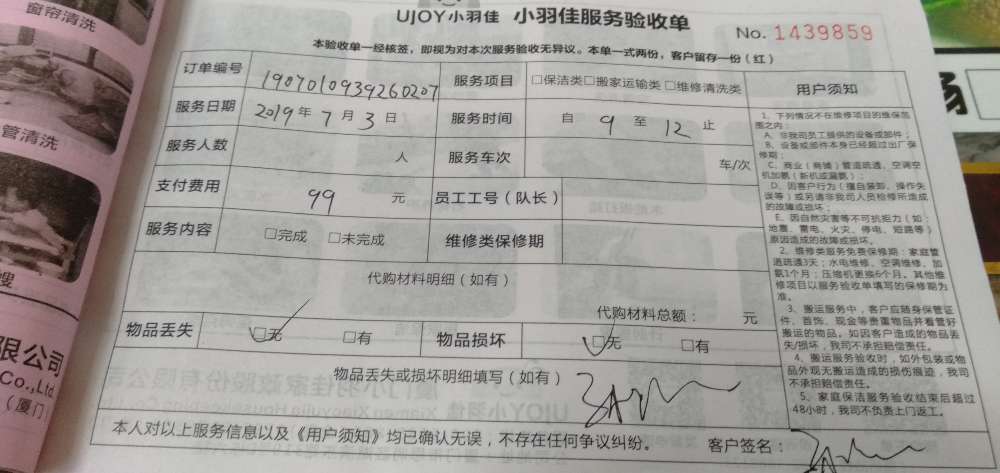 窗帘清洗
管清洗
搜
限公司
Co.,Ltd
（厦门
UJOY小羽佳 小羽佳服务验收单
No. 1439859
本验收单一经核签，即视为对本次服务验收无异议。本单一式两份，客户留存一份（红）
订单编号 1907010939260207 服务项目 □保洁类□搬家运输类 □维修清洗类 用户须知
服务日期 2019年 7月 3日 服务时间 自 9 至 12 止
服务人数 人 服务车次 车/次
支付费用 99 元 员工工号（队长）
服务内容 □完成 □未完成 维修类保修期
代购材料明细（如有）
代购材料总额： 元
物品丢失 □无 □有 物品损坏 □无 □有
物品丢失或损坏明细填写（如有）
本人对以上服务信息以及《用户须知》均已确认无误，不存在任何争议纠纷。 客户签名：
1、下列情况不在维修项目的维保范
围之内：
A、非我司员工提供的设备或部件；
B、设备或部件本身已经超过出厂保
修期；
C、商业（商铺）管道疏通、空调空
机加氨（新机或漏氨）；
D、因客户行为（擅自装卸、操作失
误等）或另请非我司人员检修所造成
的故障或损坏；
E、因自然灾害等不可抗拒力（如：
地震、雷电、火灾、停电、短路等）
原因造成的故障或损坏。
2、维修类服务免费保修期：家庭管
道疏通3天；水电维修、空调维修、加
氨1个月；压缩机更换6个月。其他维
修项目以服务验收单填写的保修期为
准。
3、搬运服务中，客户应随身保管证
件、首饰、现金等贵重物品并看管好
搬运的物品。如因客户造成的物品丢
失/损坏，我司不承担赔偿责任。
4、搬运服务验收时，如外包装或物
品外观无搬运造成的损伤痕迹，我司
不承担赔偿责任。
5、家庭保洁服务验收结束后超过
48小时，我司不负责上门返工。